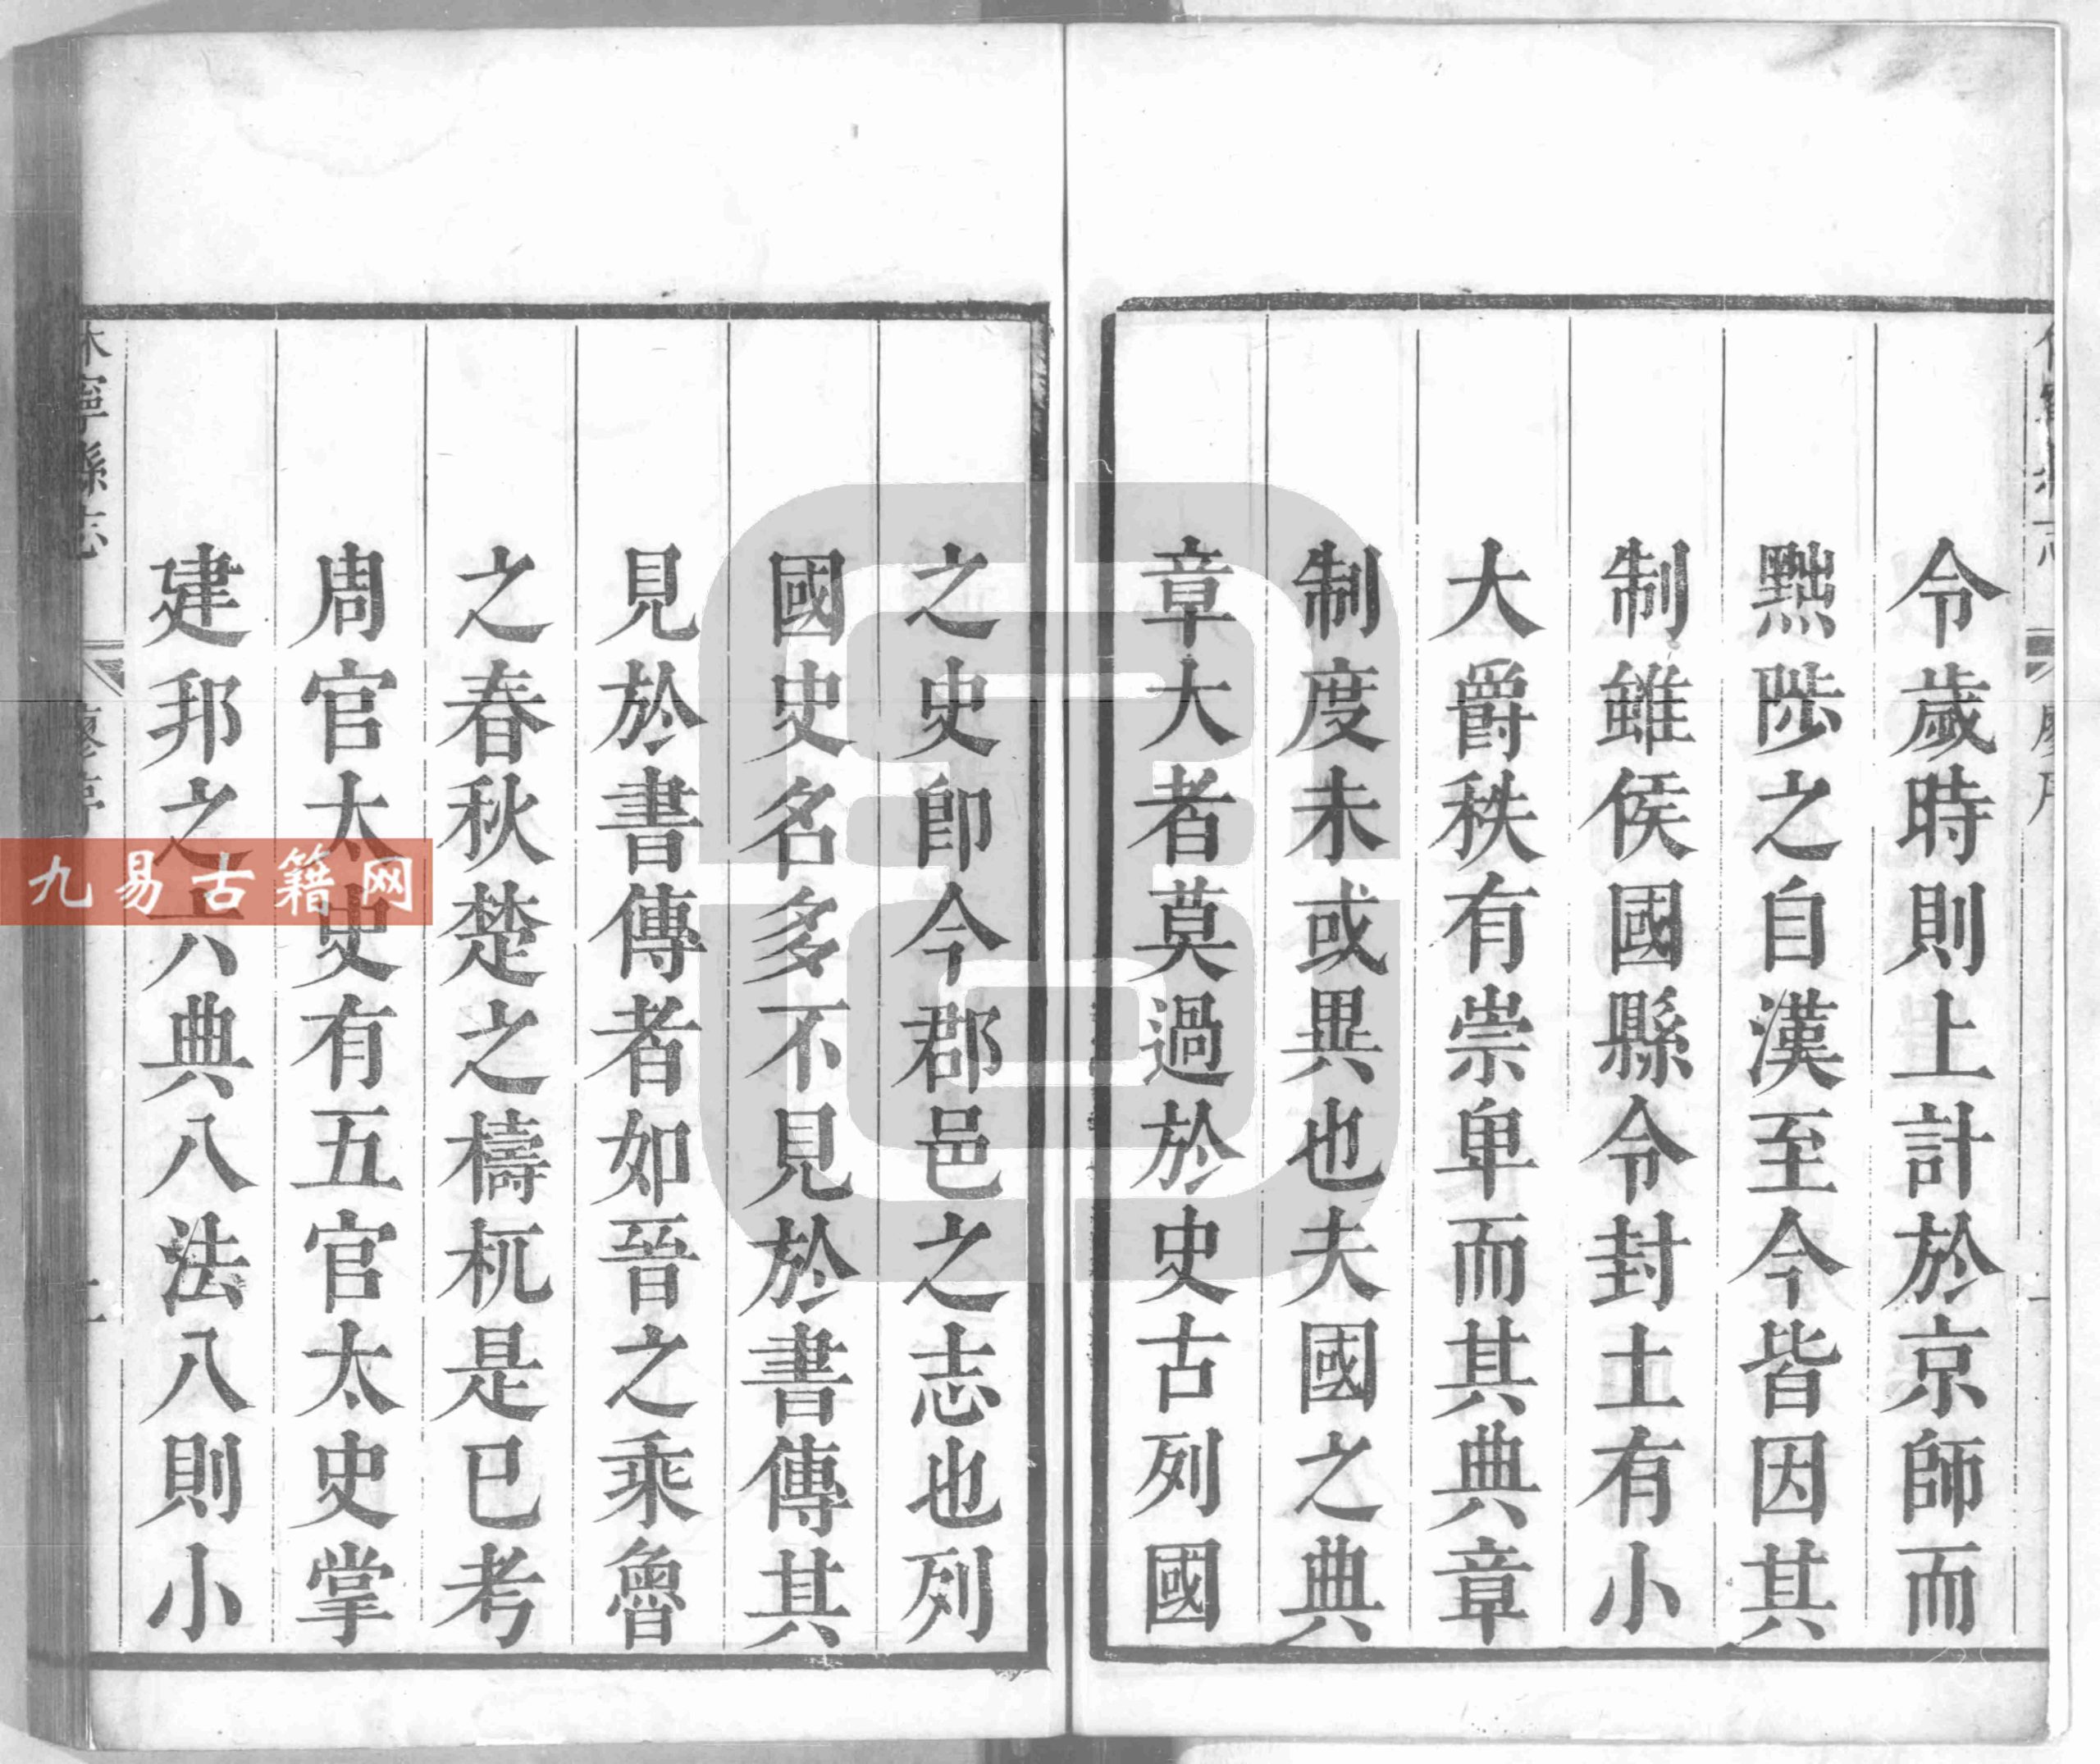 令歲時則上計於京師而
黜陟之自漢至今皆因其
制雖侯國縣令封土有小
大爵秩有崇卑而其典章
制度未或異也夫國之典
章大者莫過於史古列國
之史卽今郡邑之志也列
國史名多不見於書傳其
見於書傳者如晉之乘魯
之春秋楚之檮杌是已考
周官太史有五官太史掌
建邦之六典八法八則小
休寧縣志
廖序
九易古籍网